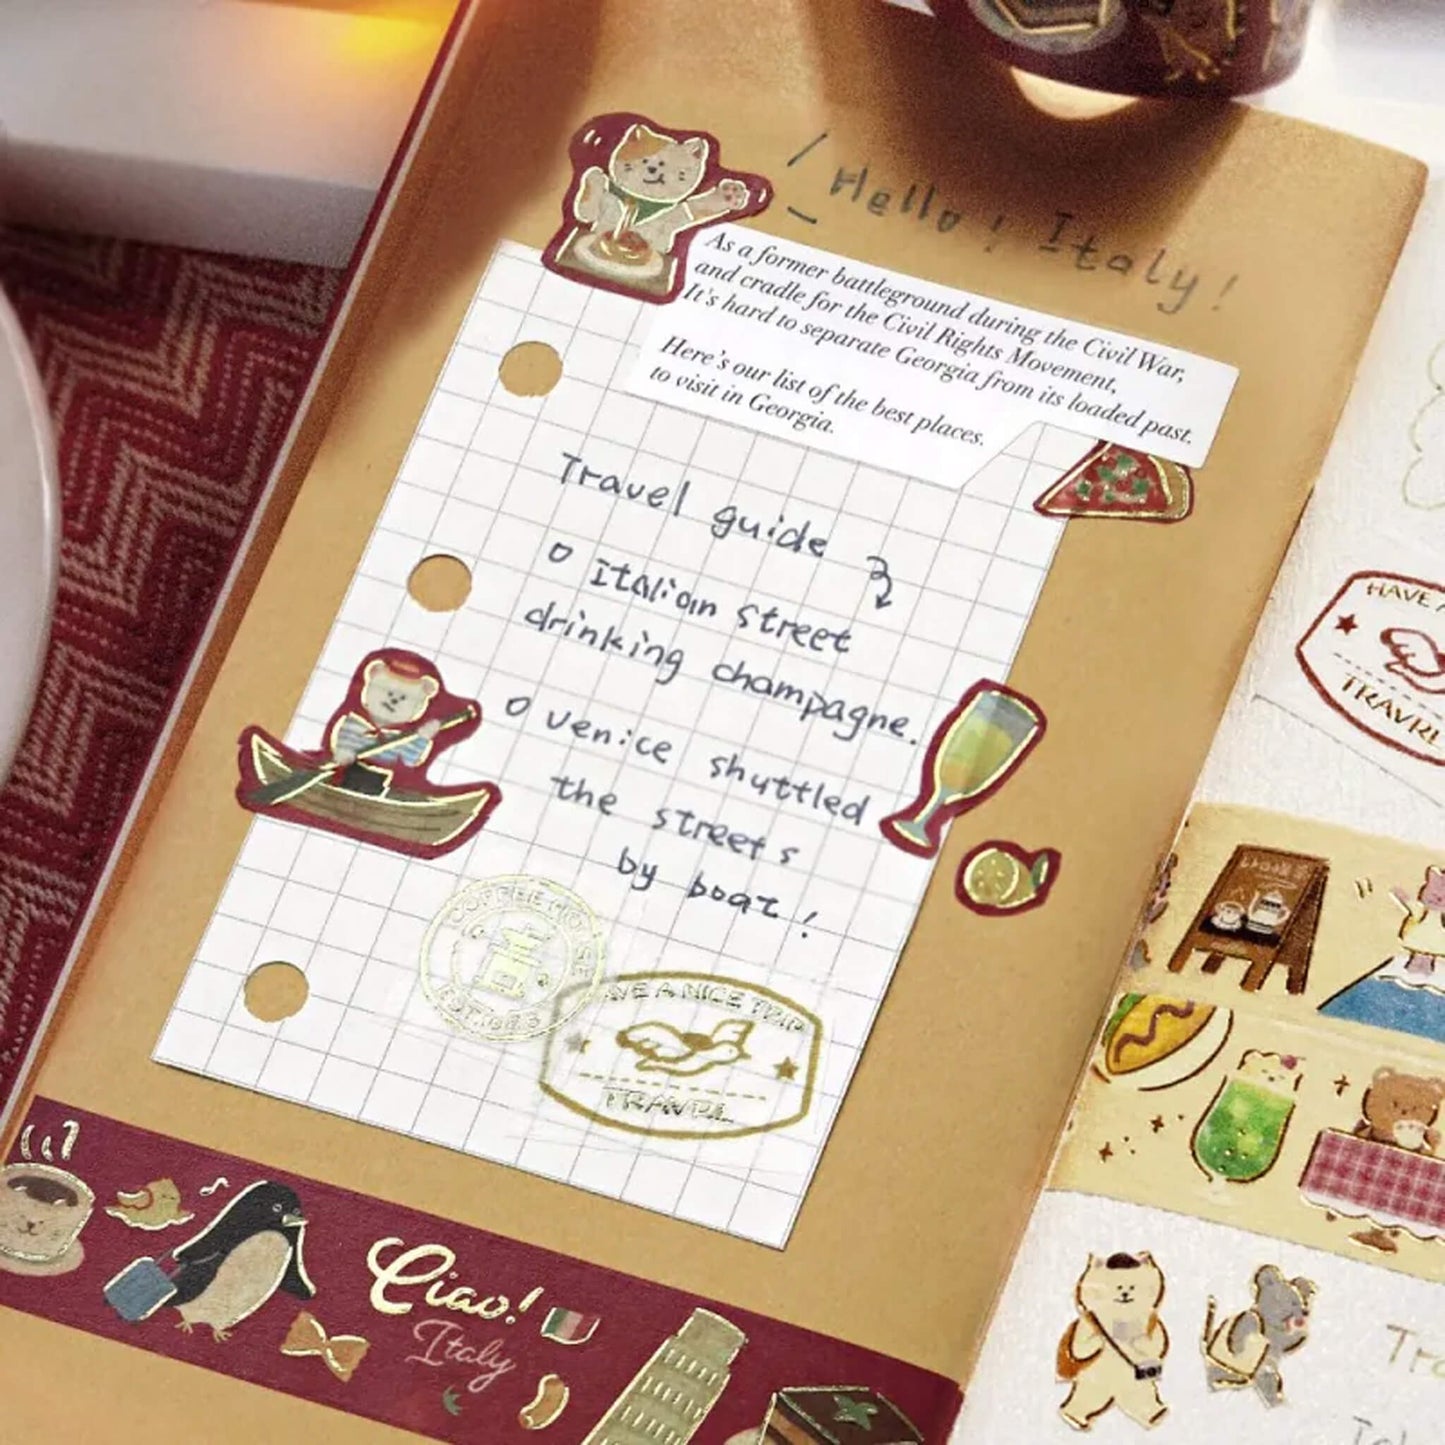 Hello! Italy!
As a former battleground during the Civil War,
and cradle for the Civil Rights Movement,
It's hard to separate Georgia from its loaded past.
Here's our list of the best places.
to visit in Georgia.
Travel guide
o Italian street
drinking champagne.
o venice shuttled
the streets
by boat!
COFFEE HOUSE
HAVE A NICE TRIP
TRAVEL
Ciao!
Italy
HAVE A
TRAVEL